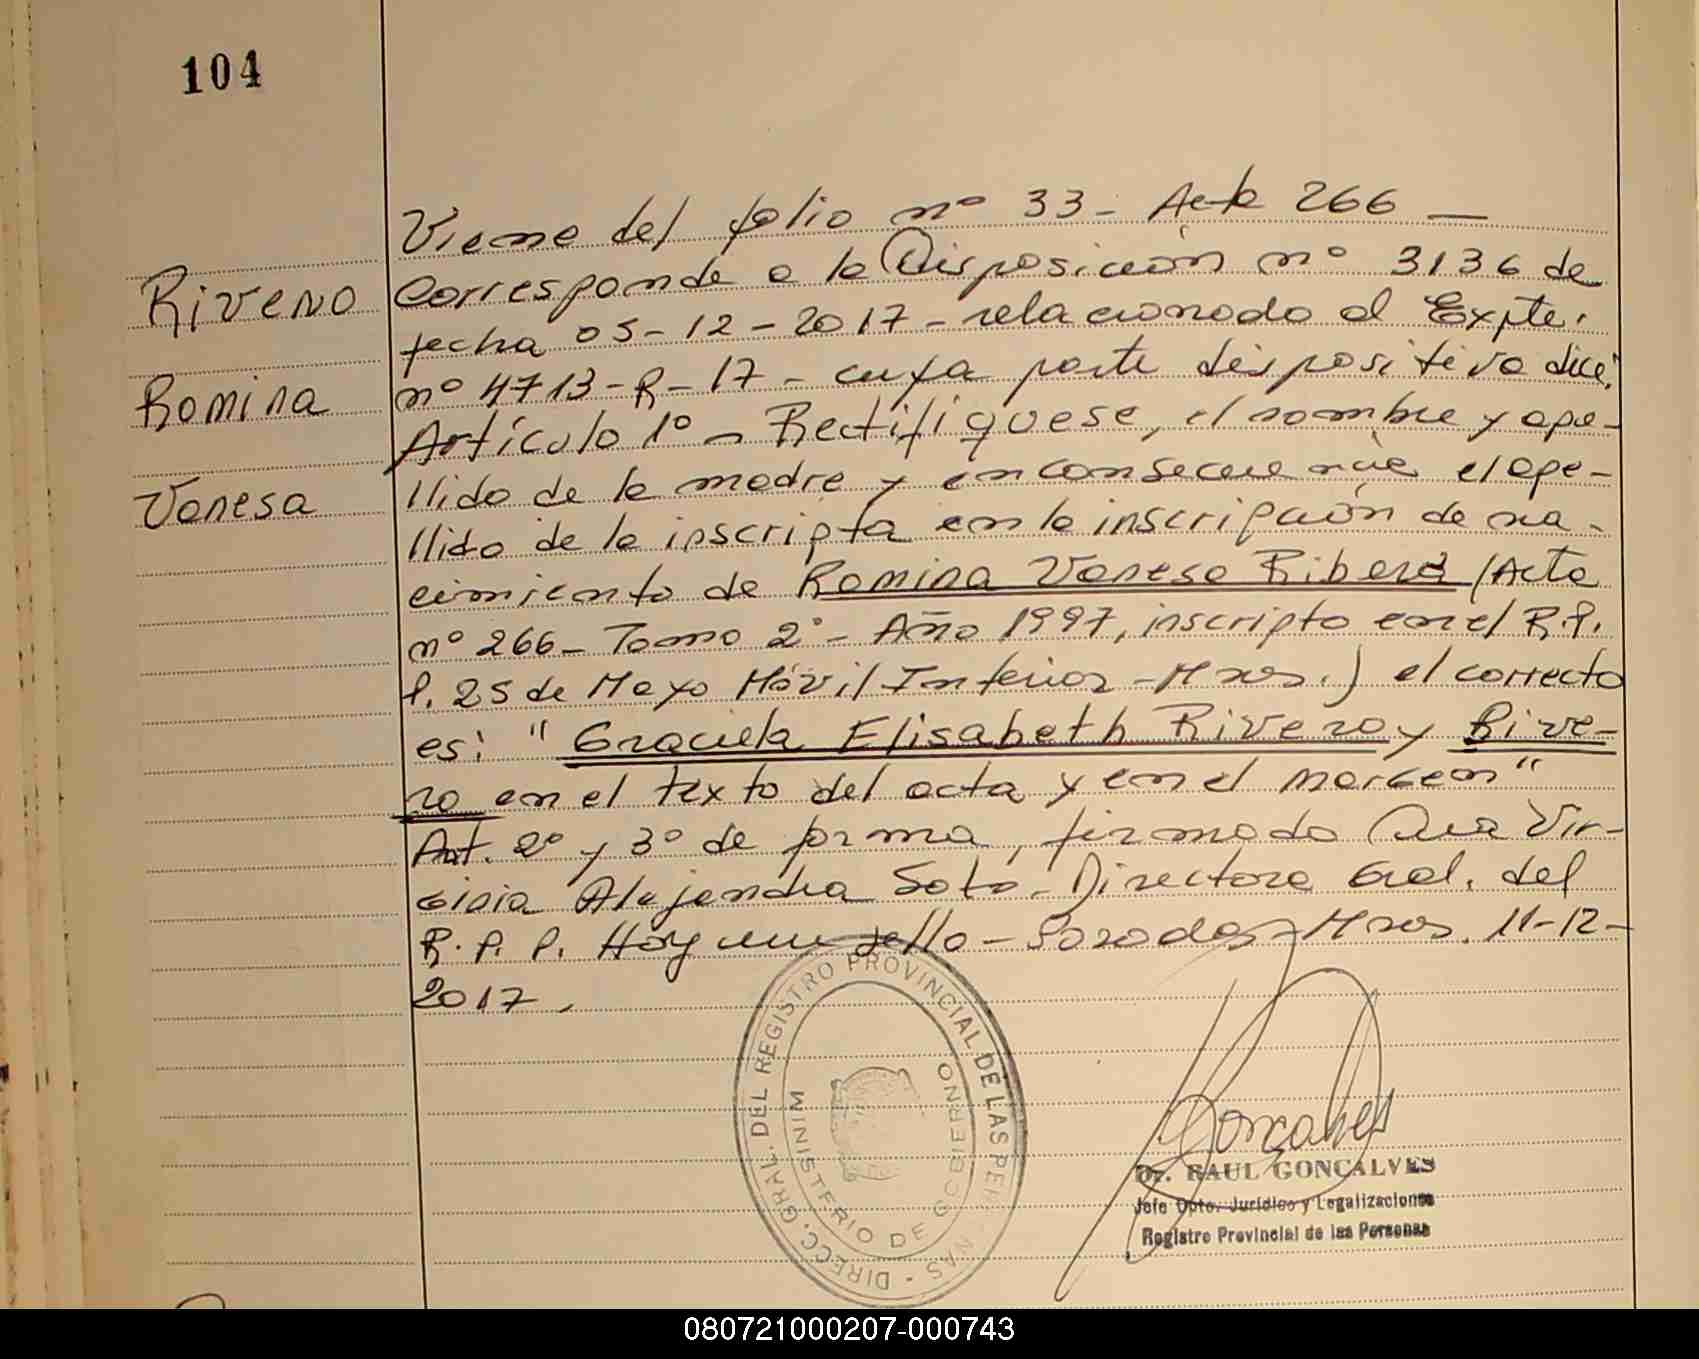 104
Viene del folio nº 33 - Acta 266 —
Rivero
Corresponde a la Disposición nº 3136 de
fecha 05-12-2017 - relacionado al Expte.
Romina
nº 4713-R-17 - cuya parte dispositiva dice:
Artículo 1º - Rectifíquese, el nombre y ape-
Vanesa
llido de la madre y en consecuencia el ape-
llido de la inscripta en la inscripción de na-
cimiento de Romina Vanesa Ribera (Acta
nº 266 - Tomo 2º - Año 1997, inscripto en el R.P.
P. 25 de Mayo Móvil Interior - Mnes.) el correcto
es: " Graciela Elisabeth Rivero y Rive-
ro en el texto del acta y en el margen"
Art. 2º y 3º de forma, firmado Ana Vir-
ginia Alejandra Soto - Directora Gral. del
R.P.P. Hay un sello - Posadas - Mnes. 11-12-
2017.
DIRECC. GRAL. DEL REGISTRO PROVINCIAL DE LAS PERSONAS
MINISTERIO DE GOBIERNO
Goncalves
Dr. RAUL GONCALVES
Jefe Dpto. Jurídico y Legalizaciones
Registro Provincial de las Personas
080721000207-000743